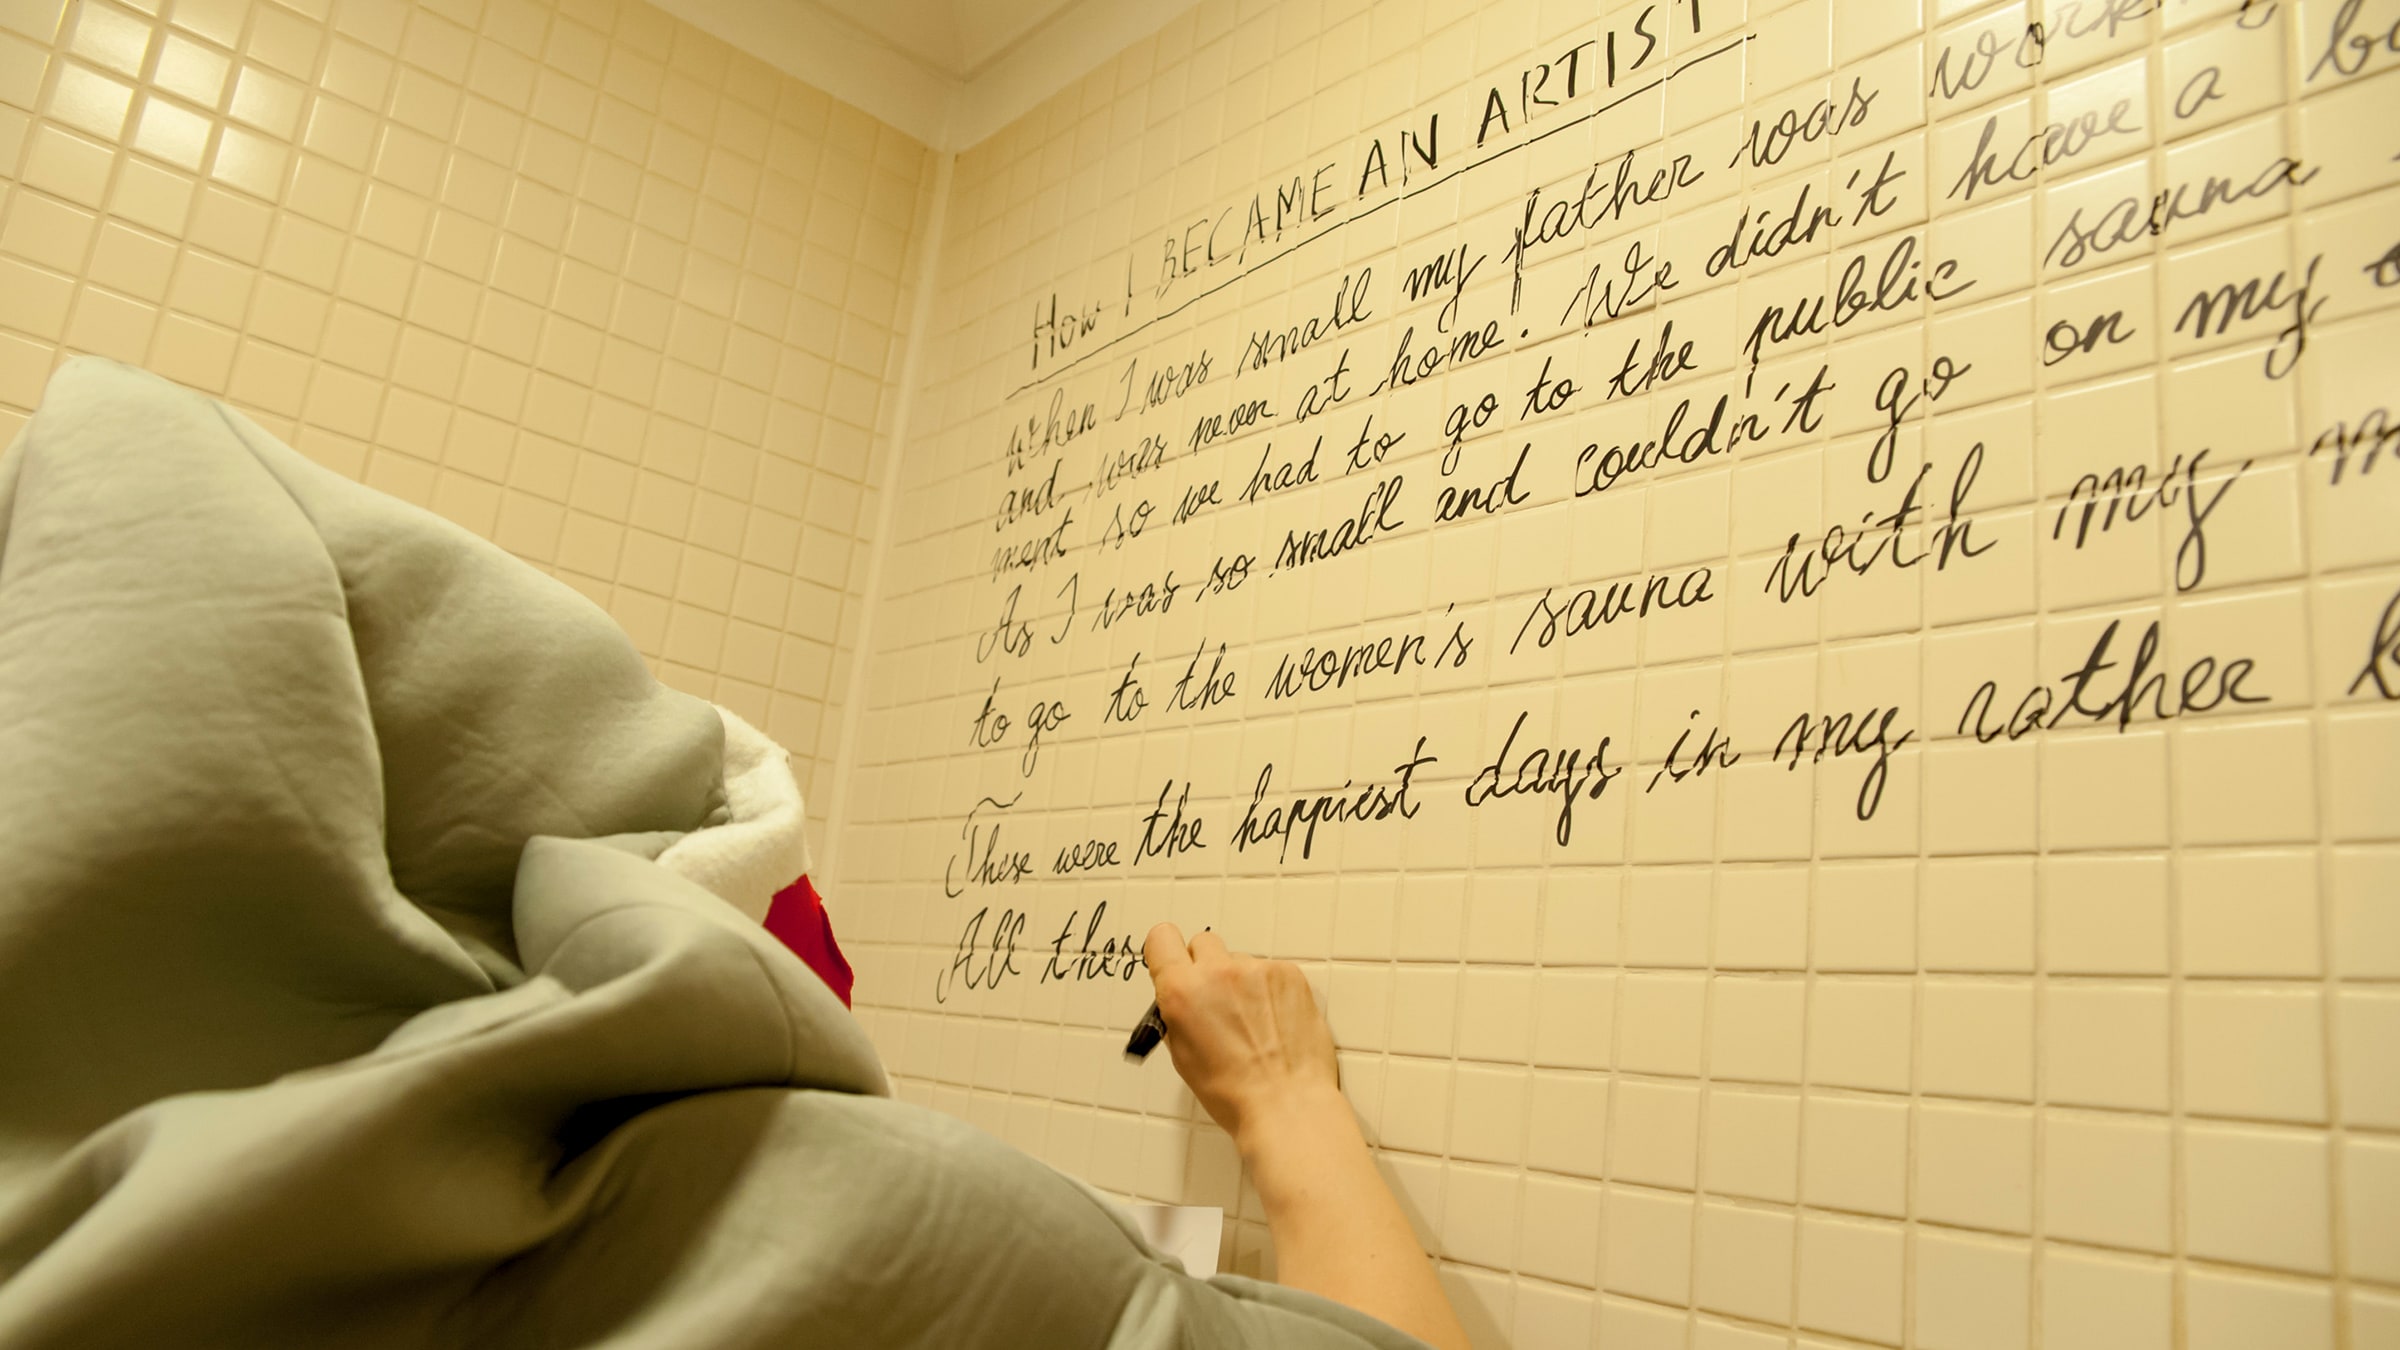 How I BECAME AN ARTIST
When I was small my father was work
and was never at home. We didn't have a
ment so we had to go to the public sauna
As I was so small and couldn't go on my
to go to the women's sauna with my
These were the happiest days in my rather
All these